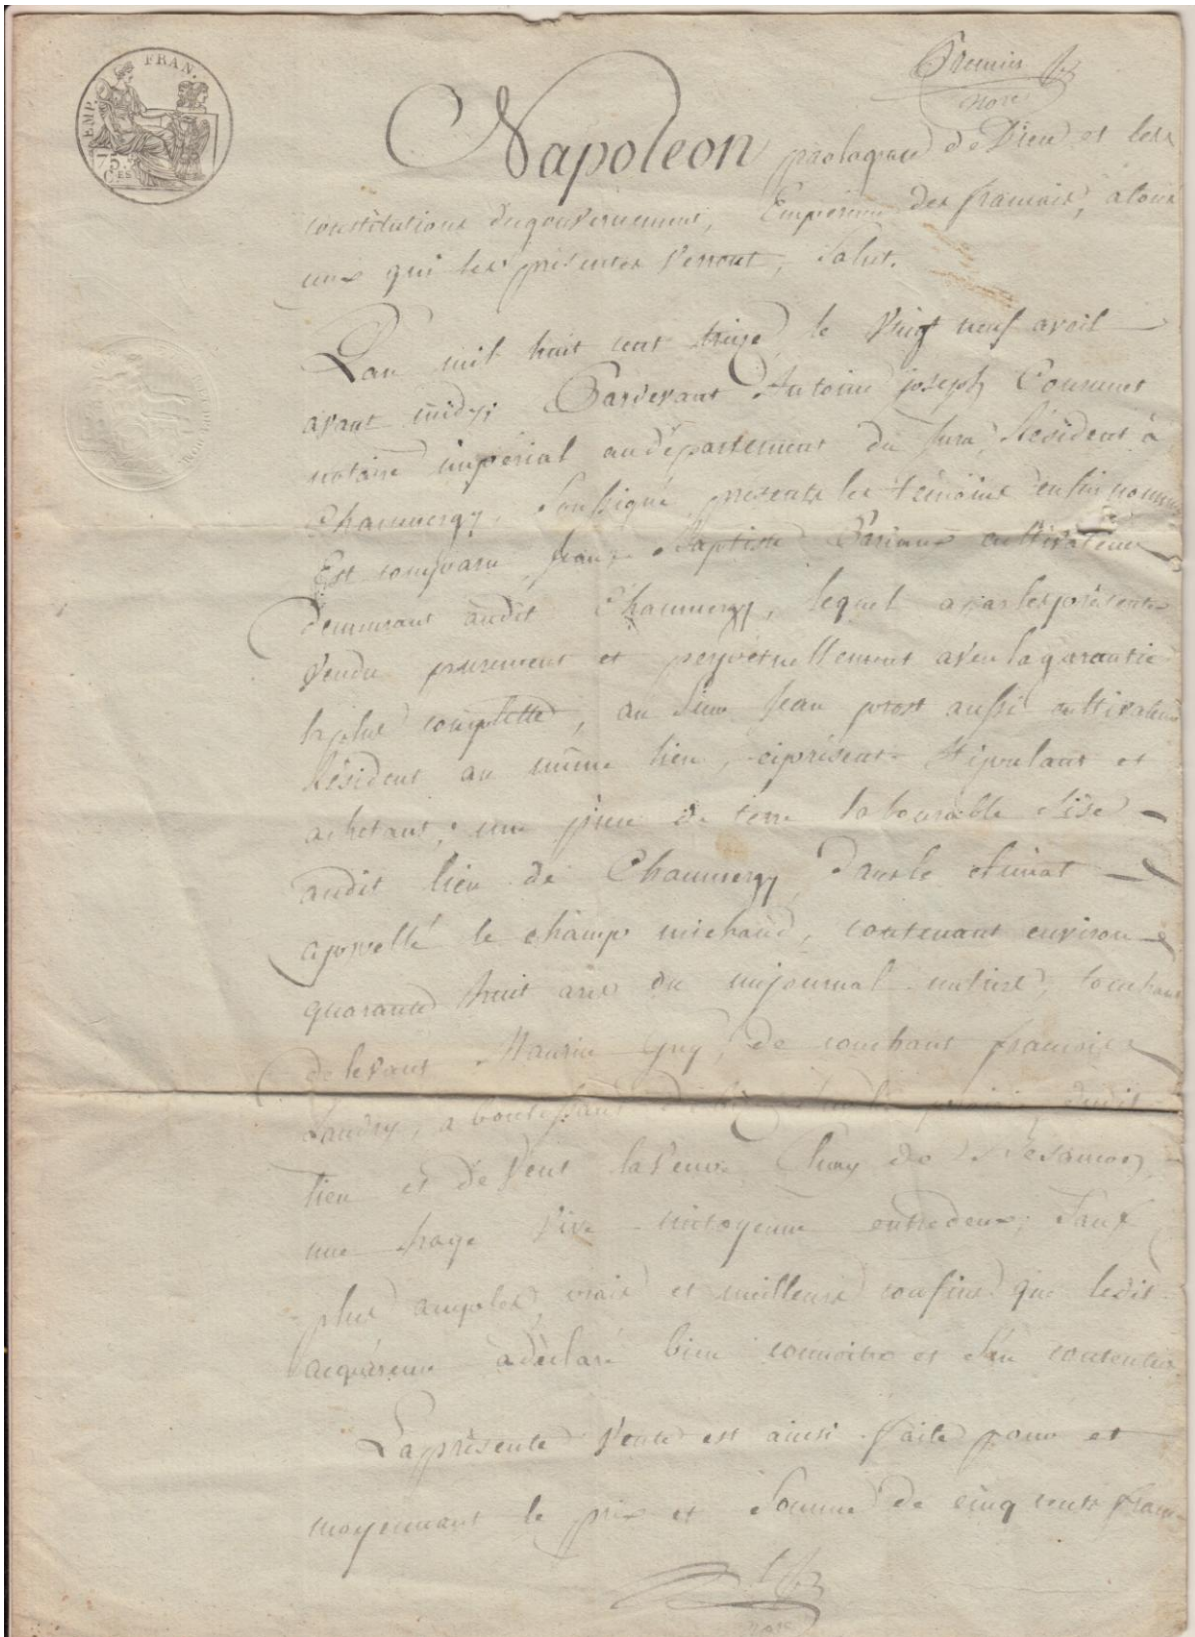 EMP. FRAN.
75
CES
Premier
Napoleon par la grace de Dieu et les
constitutions du gouvernement, Empereur des francais, a tous
ceux qui les présentes verront, Salut.
L'an mil huit cent treize le vingt neuf avril
avant midy; Pardevant Antoine joseph
notaire impérial au département du Jura, Résident à
Chaumergy, Soussigné, présents les témoins en fin nommés
Est comparu jean Baptiste cultivateur
demeurant audit Chaumergy, lequel a par les présentes
vendu purement et perpétuellement avec la garantie
la plus complette, au Sieur jean prost aussi cultivateur
Résident au même lieu, ci présent Stipulant et
achetant; une pièce de terre labourable Sise
audit lieu de Chaumergy dans le climat
appellé le champ michaud, contenant environ
quarante huit ares ou un journal mesure, touchant
de levant Maurice Guy, de couchant francois
Landry, aboutissant dudit
lieu et de vent la veuve de
une haye vive mitoyenne entre deux; Sauf
plus amples, vrais et meilleurs confins que ledit
acquéreur a déclaré bien connoitre et S'en contenter
La présente vente est ainsi faite pour et
moyennant le prix et Somme de cinq cents francs